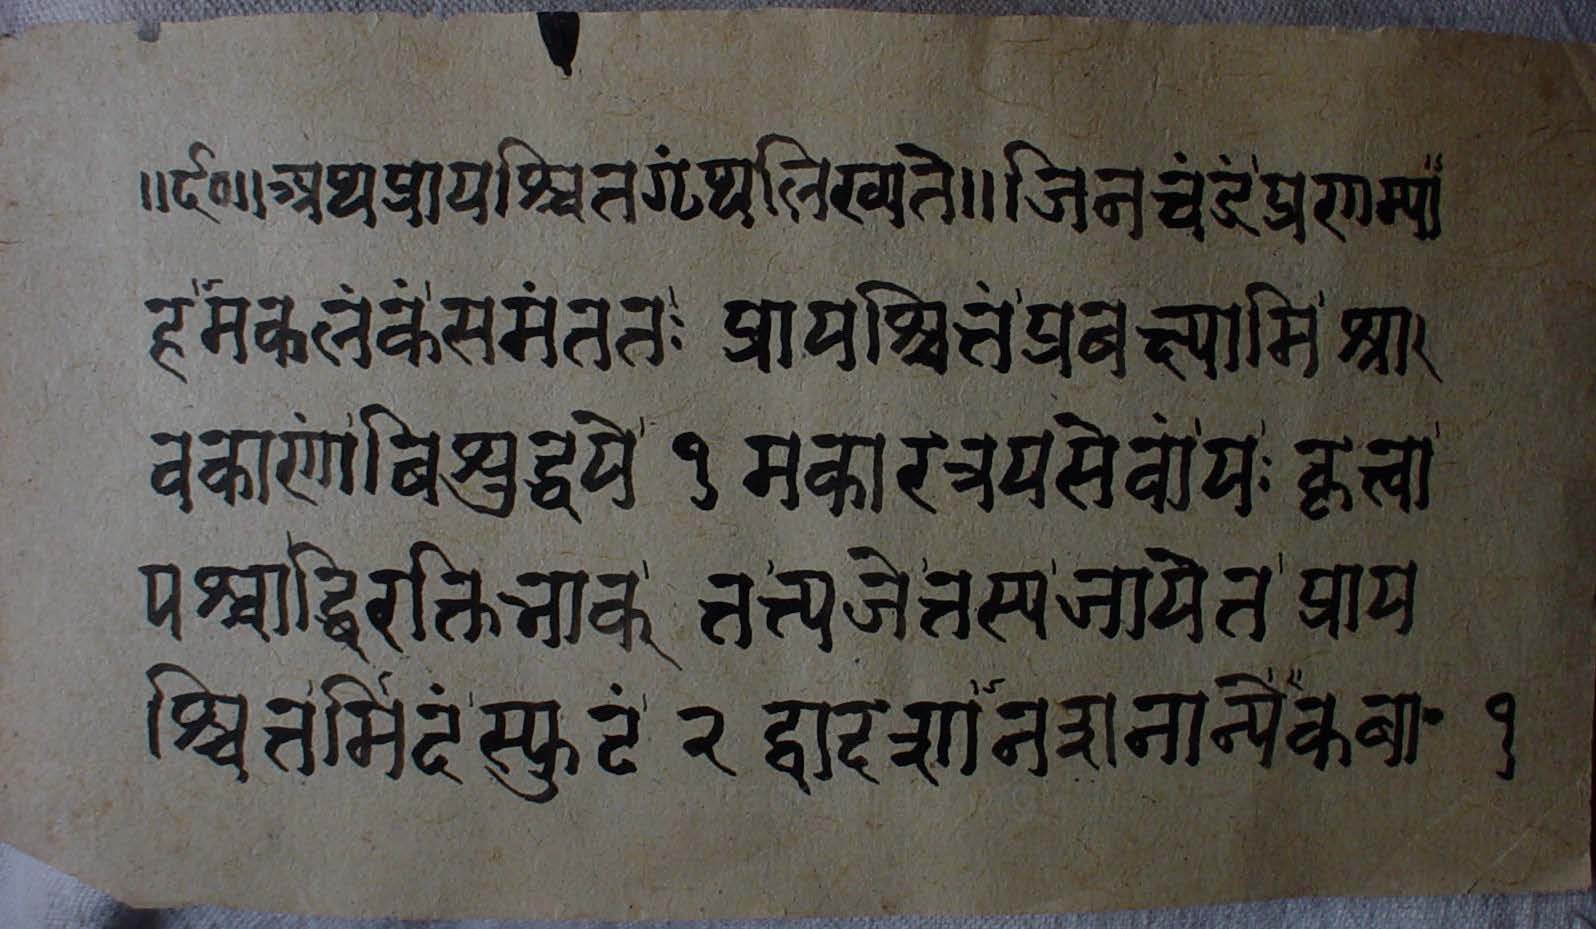 ॥ र्द०॥ अथ प्रायश्चितग्रंथ लिख्यते॥ जिनचंद्रं प्रणम्या
हमकलंकं समंततः प्रायश्चित्तं प्रबक्ष्यामि श्रा
वकाणां बिशुद्धये १ मकारत्रयसेवां यः कृत्वा
पश्चाद्विरक्तिभाक् तत्त्यजेत्तस्य जायेत प्राय
श्चित्तमिदं स्फुटं २ द्वादशानशनान्येकबा १